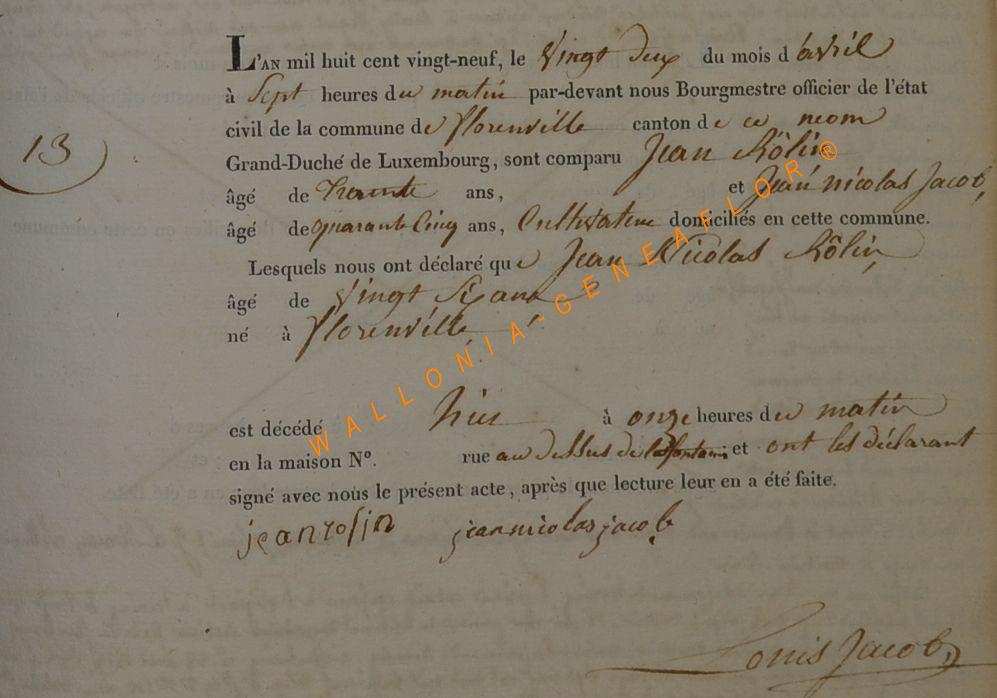 L'AN mil huit cent vingt-neuf, le Vingt deux du mois d'avril
à Sept heures du matin par-devant nous Bourgmestre officier de l'état
civil de la commune de florenville canton de ce nom
13
Grand-Duché de Luxembourg, sont comparu Jean Rôlin
âgé de trente ans, et Jean nicolas Jacob,
âgé de quarante Cinq ans, Cultivateur domiciliés en cette commune.
Lesquels nous ont déclaré que Jean Nicolas Rôlin
âgé de Vingt Six ans
né à florenville
est décédé hier à onze heures du matin
en la maison N°. rue au dessus de la fontaine et ont les déclarant
signé avec nous le présent acte, après que lecture leur en a été faite.
jean rolin jean nicolas jacob
Louis Jacob
WALLONIA-GENEAFLOR®